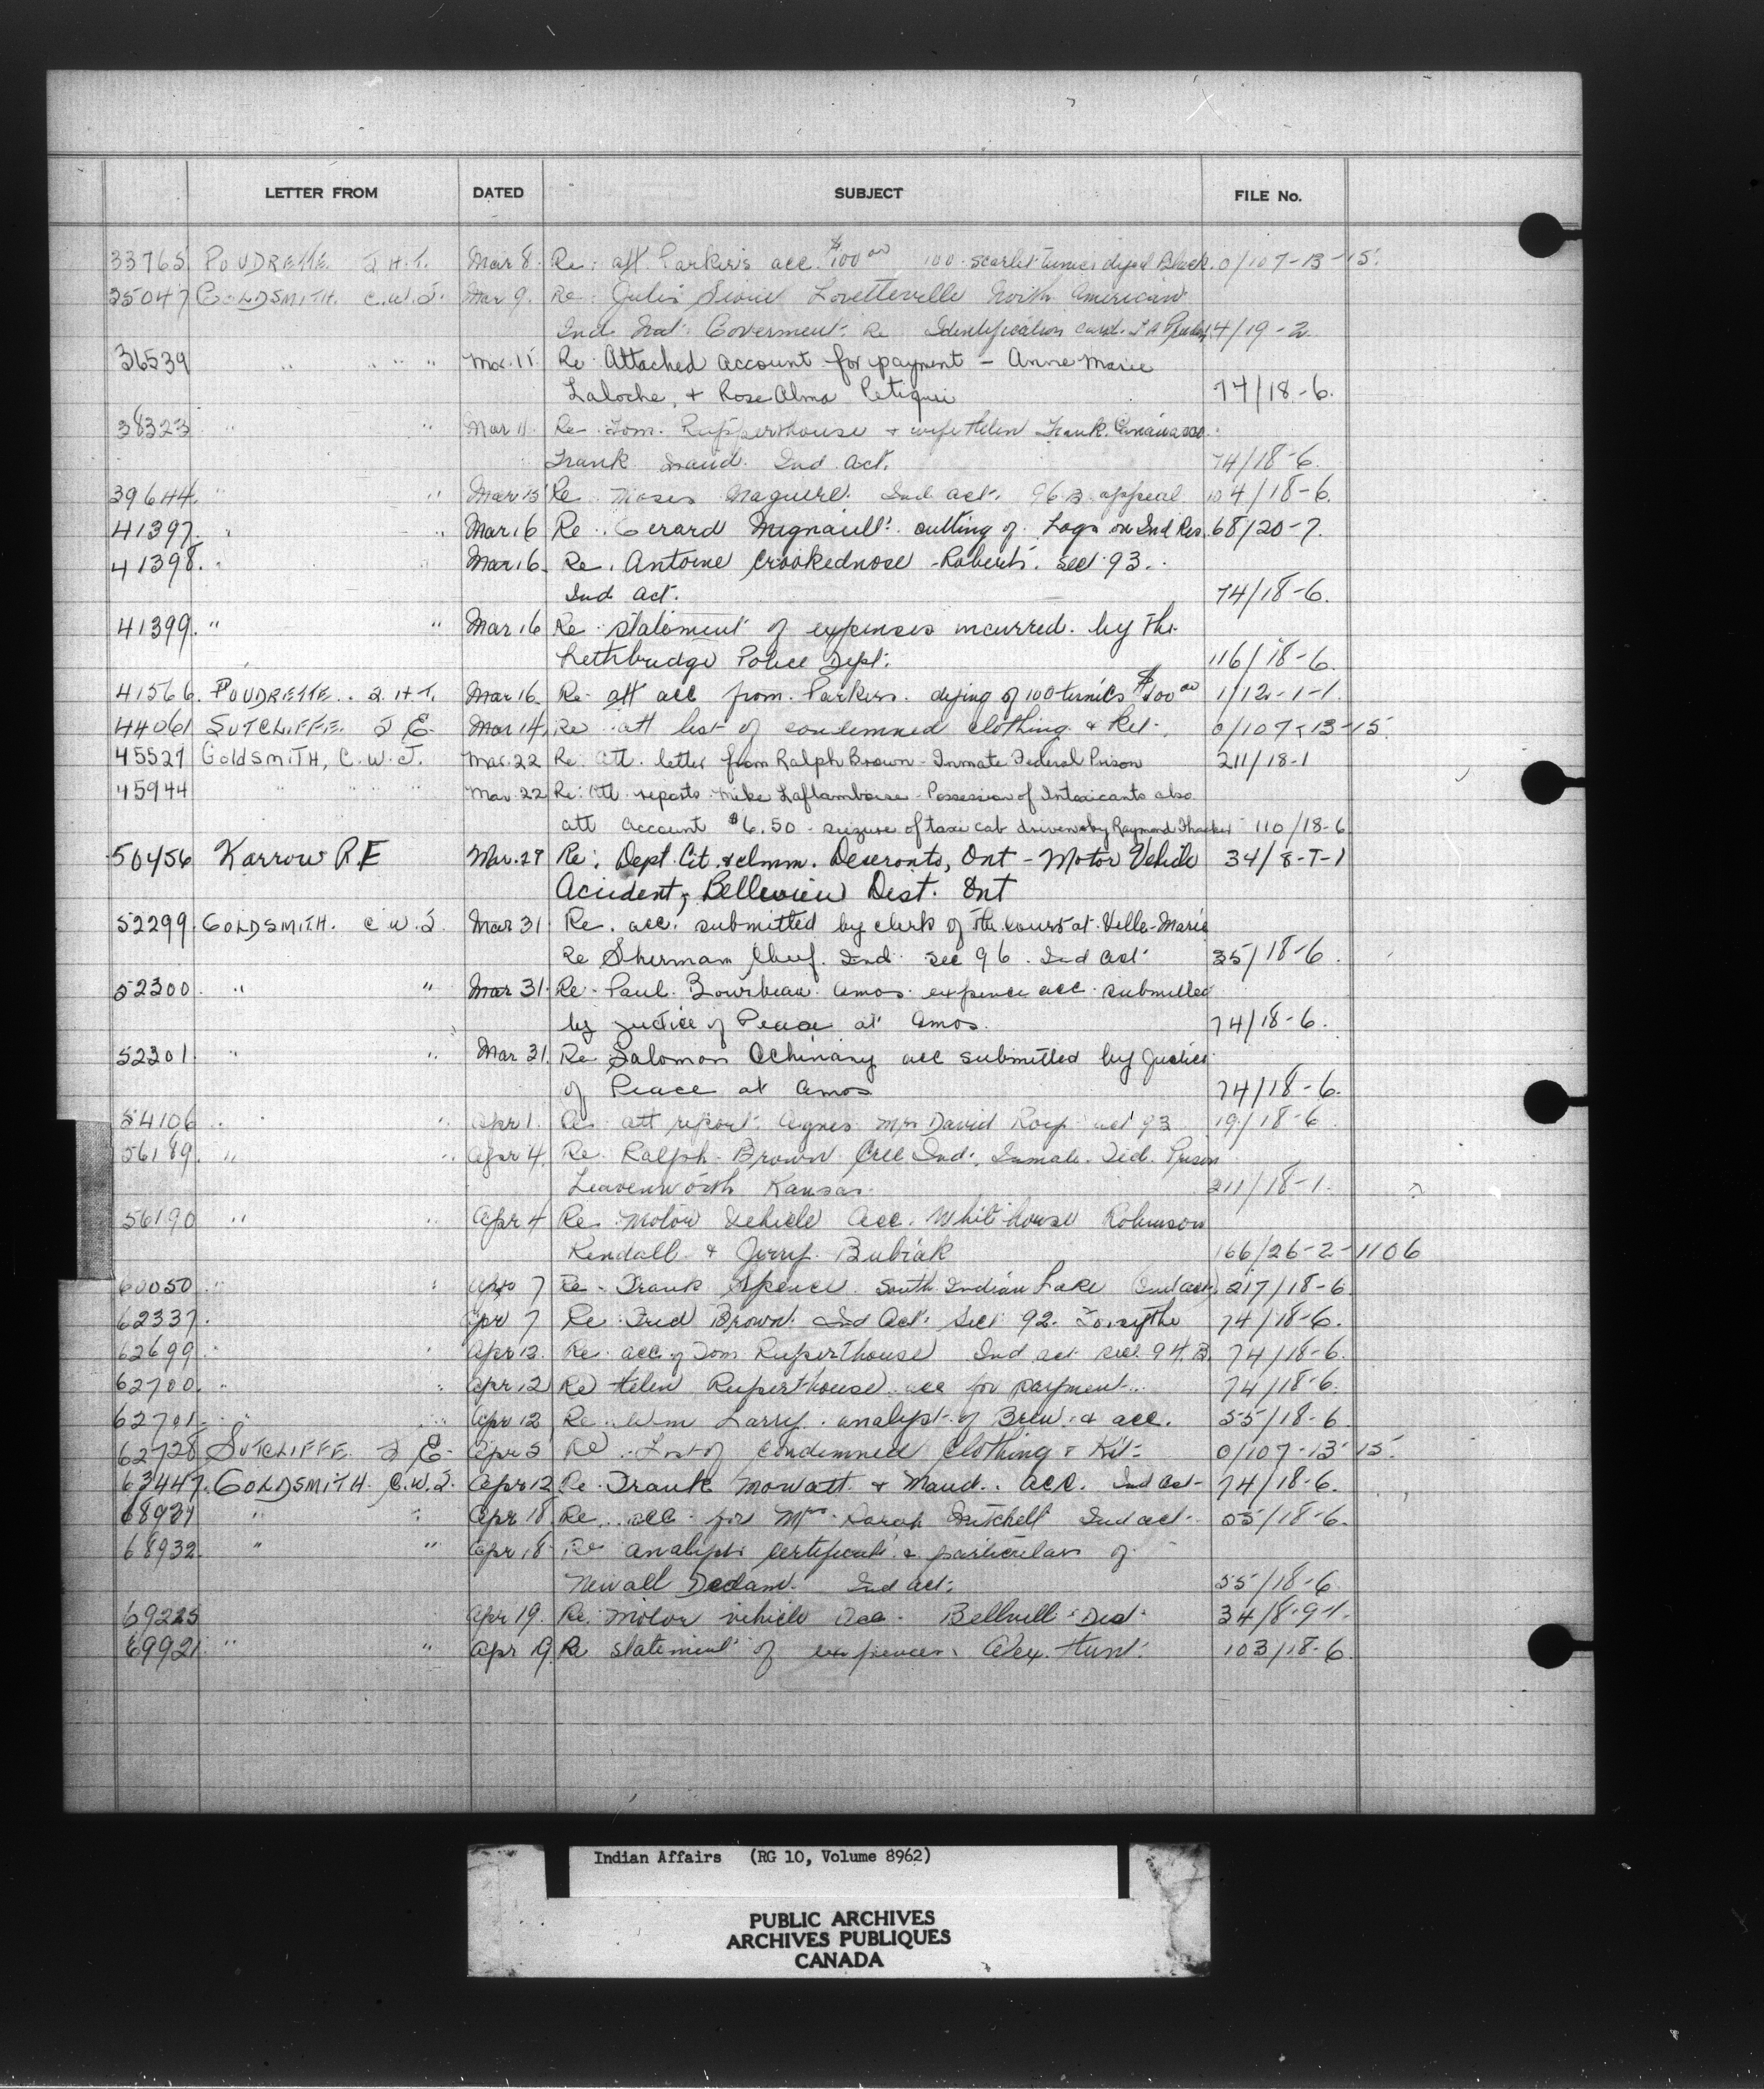 LETTER FROM DATED SUBJECT FILE No.
33765 POUDRETTE J.H.T. Mar 8. Re: att. Parker's acc. $100.00 100 scarlet tunics dyed Black. 0/107-13-15.
35047 GOLDSMITH. C.W.J. Mar 9. Re: Jules Sioui Loretteville North American
Ind. Nat. Goverment. Re Identification card. 4/19-2.
36539 " " " Mar. 11 Re Attached account for payment - Anne Marie
Laloche, + Rose Alma Petiqui 74/18-6.
38323 " " Mar 11. Re Tom. Rupperthouse + wife Helen Frank.
Frank Maud. Ind. Act. 74/18-6.
39644. " " Mar 15 Re Moses Ind act. 96 B appeal 104/18-6.
41397. " " Mar 16 Re. Gerard Mignault. cutting of Logs on Ind Res. 68/20-7.
41398. " Mar 16. Re. Antoine Crookednose - Roberts. sec 93.
Ind act. 74/18-6.
41399. " " Mar 16 Re statement of expenses incurred. by the
Lethbridge Police Dept. 116/18-6.
41566. POUDRETTE. J.H.T. Mar 16. Re att acc from. Parkers. dying of 100 tunics $100.00 1/12-1-1.
44061 SUTCLIFFE. J E. Mar 14. Re att list of condemned clothing & Kit. 0/107-13-15.
45527 GoldsmiTH, C.W.J. Mar. 22 Re: Att. letter from Ralph Brown - Inmate Federal Prison 211/18-1
45944 " " " " Mar. 22 Re: Att. reports Mike Laflamboise - Possession of Intoxicants also
att account $6.50 - seizure of taxi cab driven by Raymond Thacker 110/18-6
50456 Karrow R.E Mar. 29 Re: Dept. Cit. & Imm. Deseronto, Ont - Motor Vehicle 34/8-9-1
Accident, Belleview Dist. Ont
52299 GOLDSMITH. C.W.J. Mar 31 Re. acc. submitted by clerk of the court at Ville-Marie
Re Sherman Chief. Ind. sec 96. Ind act 35/18-6.
52300. " " Mar 31. Re. Paul. Bourbeau. Amos. expence acc. submitted
by Justice of Peace at Amos. 74/18-6.
52301. " " Mar 31. Re Salomon acc submitted by Justice
of Peace at Amos 74/18-6.
54106 " " Apr 1. Re att report. Agnes Mrs David act 93 19/18-6.
56189. " " Apr 4. Re Ralph Brown Cree Ind. Inmate. Fed. Prison
Leavenworth Kansas. 211/18-1.
56190 " " Apr 4 Re Motor Vehicle Acc. Whitehouse Robinson
Kendall & Jerry. Bubiak 166/26-2-1106
60050 " " Apr 7 Re - Frank Spence. South Indian Lake (Ind act). 217/18-6
62337. Apr 7 Re. Fred Brown. Ind Act. Sec 92. Forsythe 74/18-6.
62699 " " Apr 12. Re. acc of Tom Ruperthouse Ind act sec. 94.B. 74/18-6.
62700. " " Apr 12 Re Helen Ruperthouse. acc for payment. 74/18-6.
62701. " " Apr 12 Re. Wm Larry. analyst of Brew. & acc. 55/18-6.
62728 SUTCLIFFE J E. Apr 5 Re. List of Condemned Clothing & Kit. 0/107-13-15.
63447. GOLDSMITH C.W.J. Apr 12 Re. Frank Mowatt & Maud. acc. Ind act- 74/18-6.
68931 " " Apr 18. Re. acc for Mrs Sarah Mitchell Ind act. 55/18-6.
68932. " " Apr 18 Re analysts certificate & particulars of
Newall Dedam. Ind act. 55/18-6
69225 Apr 19. Re. Motor vehicle Acc. Dist. 34/8-9-1.
69921. " " Apr 19. Re statement of expences. Alex. Hunt. 103/18-6.
Indian Affairs (RG 10, Volume 8962)
PUBLIC ARCHIVES
ARCHIVES PUBLIQUES
CANADA